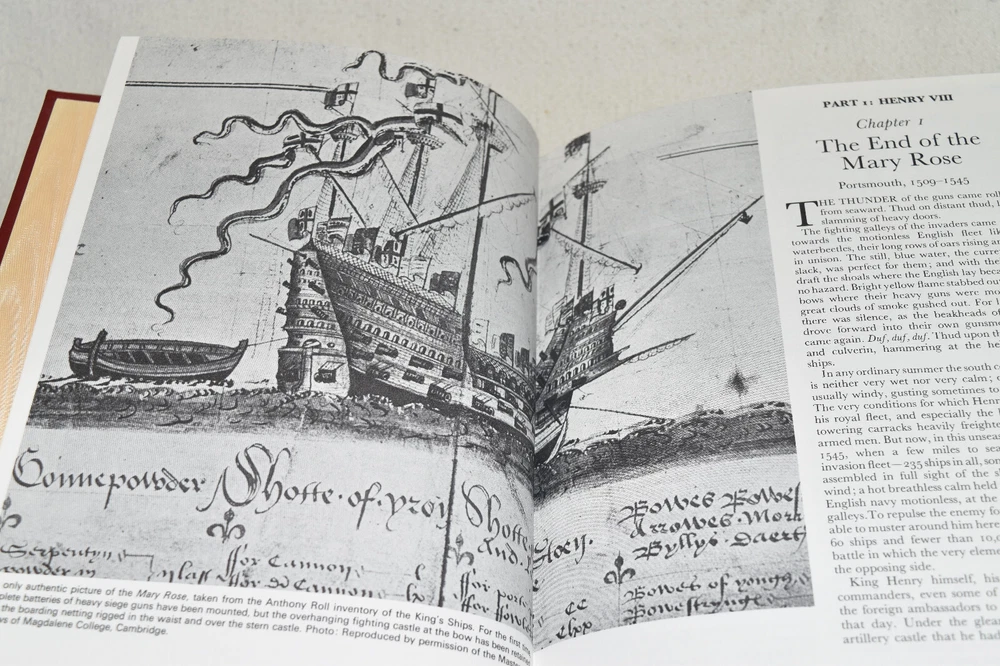 Gonnepowder Shotte of yroy
Shotte
And
Serpentyn
powder in
ffor Cannon
ffor di Cannon
ffor porte
Bowes Bowes
Arrowes Mor
Byllys Daert
Bowes of
Bowestrynge
only authentic picture of the Mary Rose, taken from the Anthony Roll inventory of the King's Ships. For the first
batteries of heavy siege guns have been mounted, but the overhanging fighting castle at the bow has been
the boarding netting rigged in the waist and over the stern castle. Photo: Reproduced by permission of the
of Magdalene College, Cambridge.
PART 1: HENRY VIII
Chapter 1
The End of the
Mary Rose
Portsmouth, 1509–1545
THE THUNDER of the guns came
from seaward. Thud on distant thud,
slamming of heavy doors.
The fighting galleys of the invaders came
towards the motionless English fleet
waterbeetles, their long rows of oars rising
in unison. The still, blue water, the
slack, was perfect for them; and with the
draft the shoals where the English lay
no hazard. Bright yellow flame stabbed
bows where their heavy guns were
great clouds of smoke gushed out. For
there was silence, as the beakheads of
drove forward into their own
came again. Duf, duf, duf. Thud upon
and culverin, hammering at the
ships.
In any ordinary summer the south
is neither very wet nor very calm;
usually windy, gusting sometimes to
The very conditions for which
his royal fleet, and especially the
towering carracks heavily
armed men. But now, in this
1545, when a few miles to
invasion fleet—235 ships in all,
assembled in full sight of the
wind; a hot breathless calm held
English navy motionless, at the
galleys. To repulse the enemy
able to muster around him here
60 ships and fewer than
battle in which the very
the opposing side.
King Henry himself, his
commanders, even some of
the foreign ambassadors to
that day. Under the
artillery castle that he had